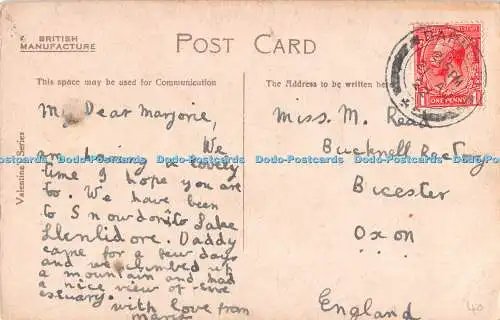 BRITISH
MANUFACTURE
POST CARD
This space may be used for Communication
The Address to be written here
Valentine's Series
ONE PENNY
My Dear Marjorie,
We
are having a lovely
time I hope you are
to. We have been
to Snowdon to Lake
Llenlidore. Daddy
came for a few days
and we climbed up
a mountain and had
a nice view of
estuary.
with love from
Miss. M. Read
Bucknell Rectory
Bicester
Oxon
England
Dodo-Postcards Dodo-Postcards Dodo-Postcards Dodo-Postcards Dodo-Postcards
40